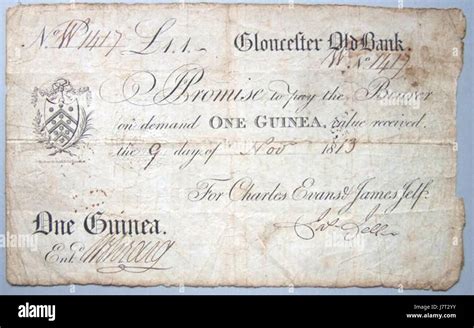 No. W 1417 £1.1. Gloucester Old Bank.
W No. 1417
I Promise to pay the Bearer
on demand ONE GUINEA, value received.
the 9 day of Nov 1813
For Charles Evans & James Jelf.
One Guinea.
Entd.
alamy
Image ID: J7T2YY
www.alamy.com